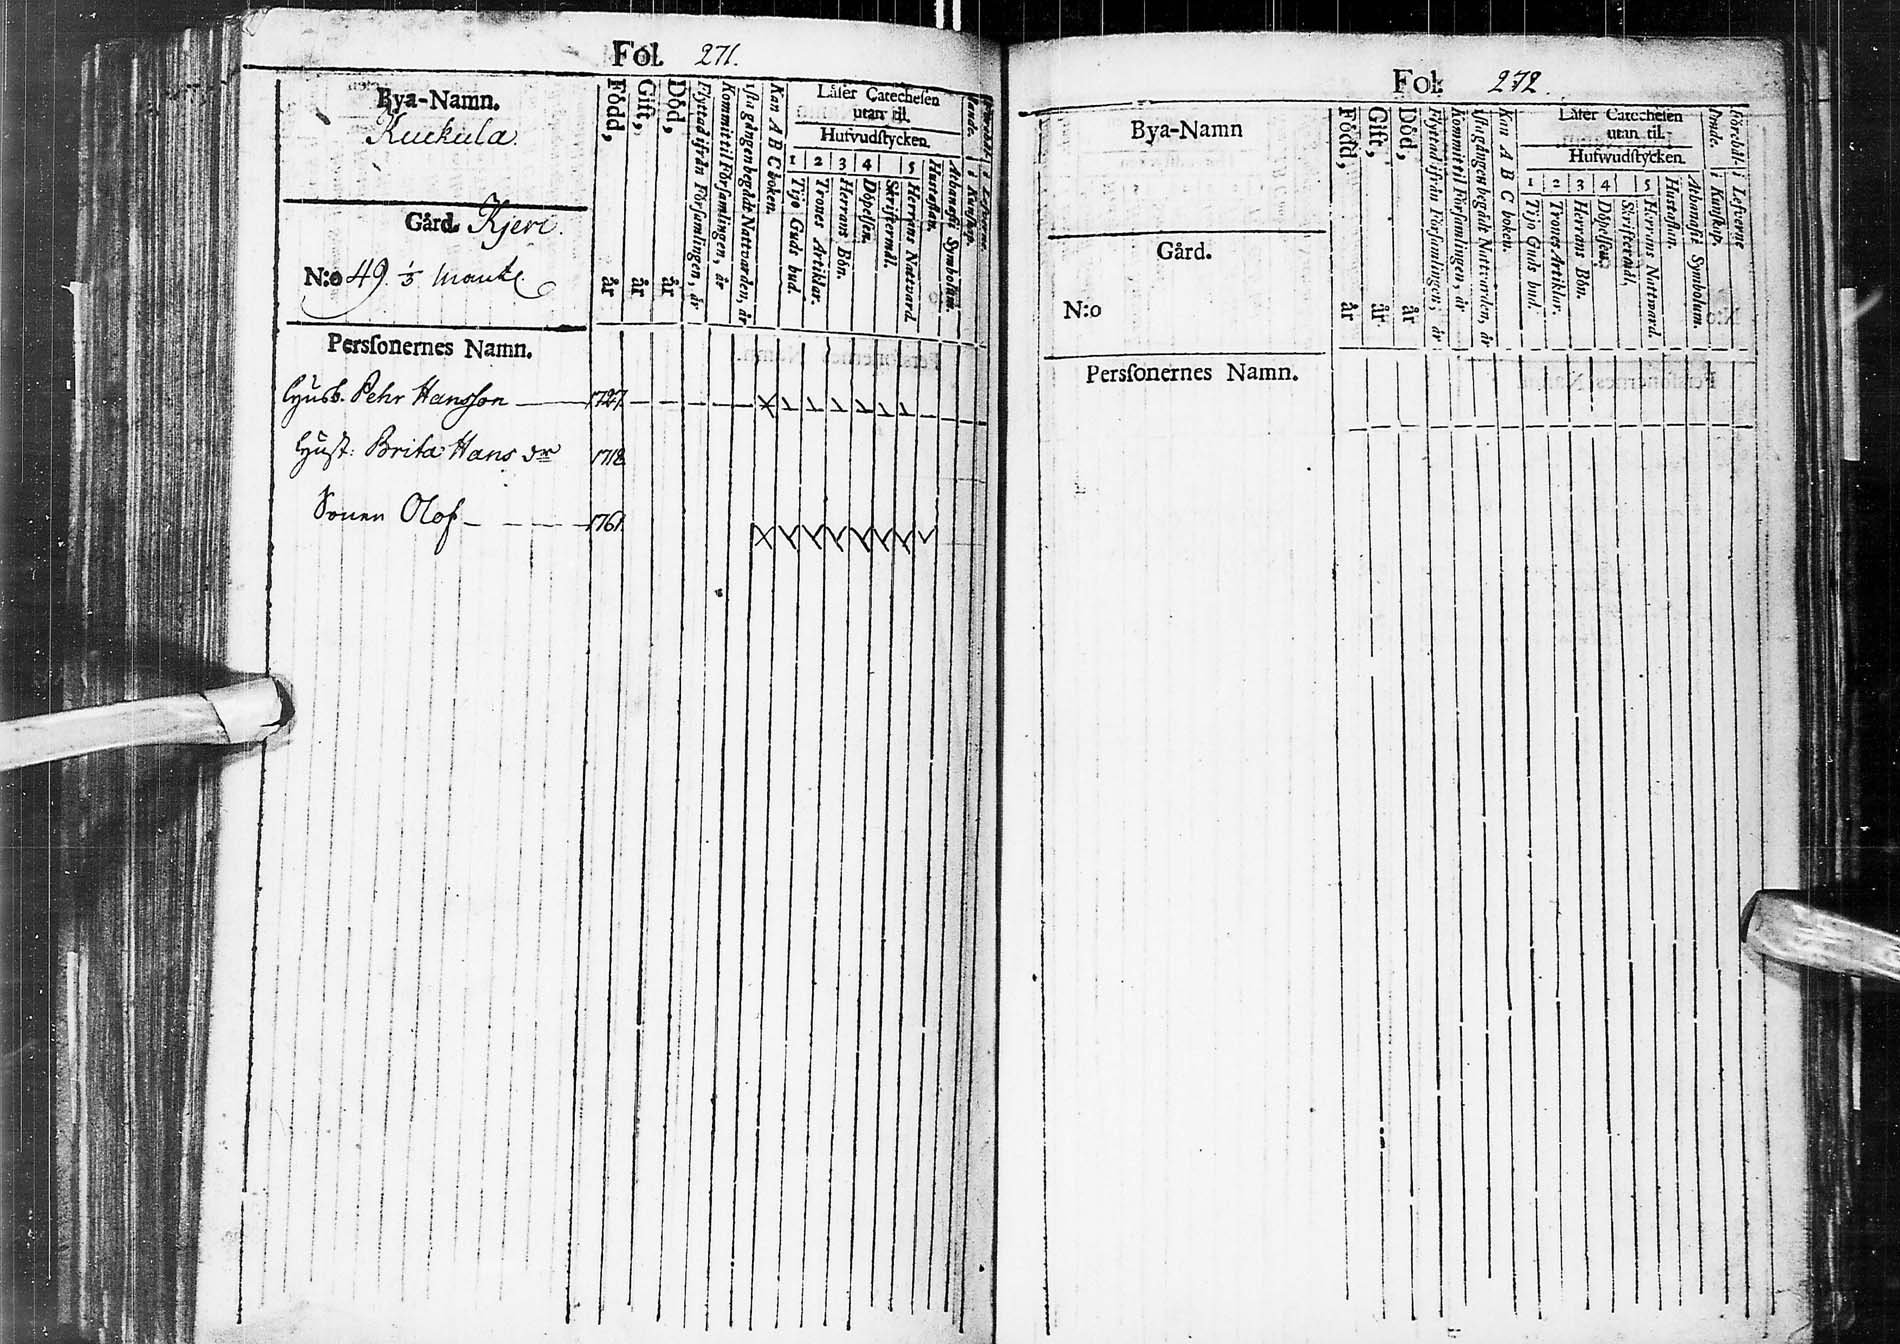 Fol. 271.
Bya-Namn.
Kuckula.
Gård. Kjeri.
N:o 49. 1/3 mantl.
Persſonernes Namn.
Född, år
Gift, år
Död, år
Flyttad ifrån Församlingen, år
Kommit til Församlingen, år
1sta gången begådt Nattvarden, år
Kan A B C boken.
Läser Catechesen
utan til.
Hufvudstycken.
1 2 3 4 5
Tijo Guds bud.
Trones Artiklar.
Herrans Bön.
Döpelsen.
Skriftermål.
Herrans Nattvard.
Hustaflan.
Athanasii Symbolum.
Husb. Pehr Hansson 1727.
Hust: Brita Hans dr 1718
Sonen Olof 1761.
Fol. 272.
Bya-Namn
Gård.
N:o
Persſonernes Namn.
Född, år
Gift, år
Död, år
Flyttad ifrån Församlingen, år
Kommit til Församlingen, år
1sta gången begådt Nattvarden, år
Kan A B C boken.
Läser Catechesen
utan til.
Hufwudstycken.
1 2 3 4 5
Tijo Guds bud.
Trones Artiklar.
Herrans Bön.
Döpelsen.
Skriftermål.
Herrans Nattvard.
Hustaflan.
Athanasii Symbolum.
Förhållande. i Kunskap.
i Lefverne